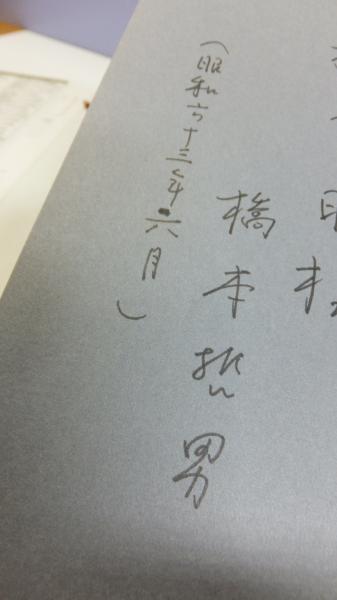 橋本哲男
（昭和六十三年六月）